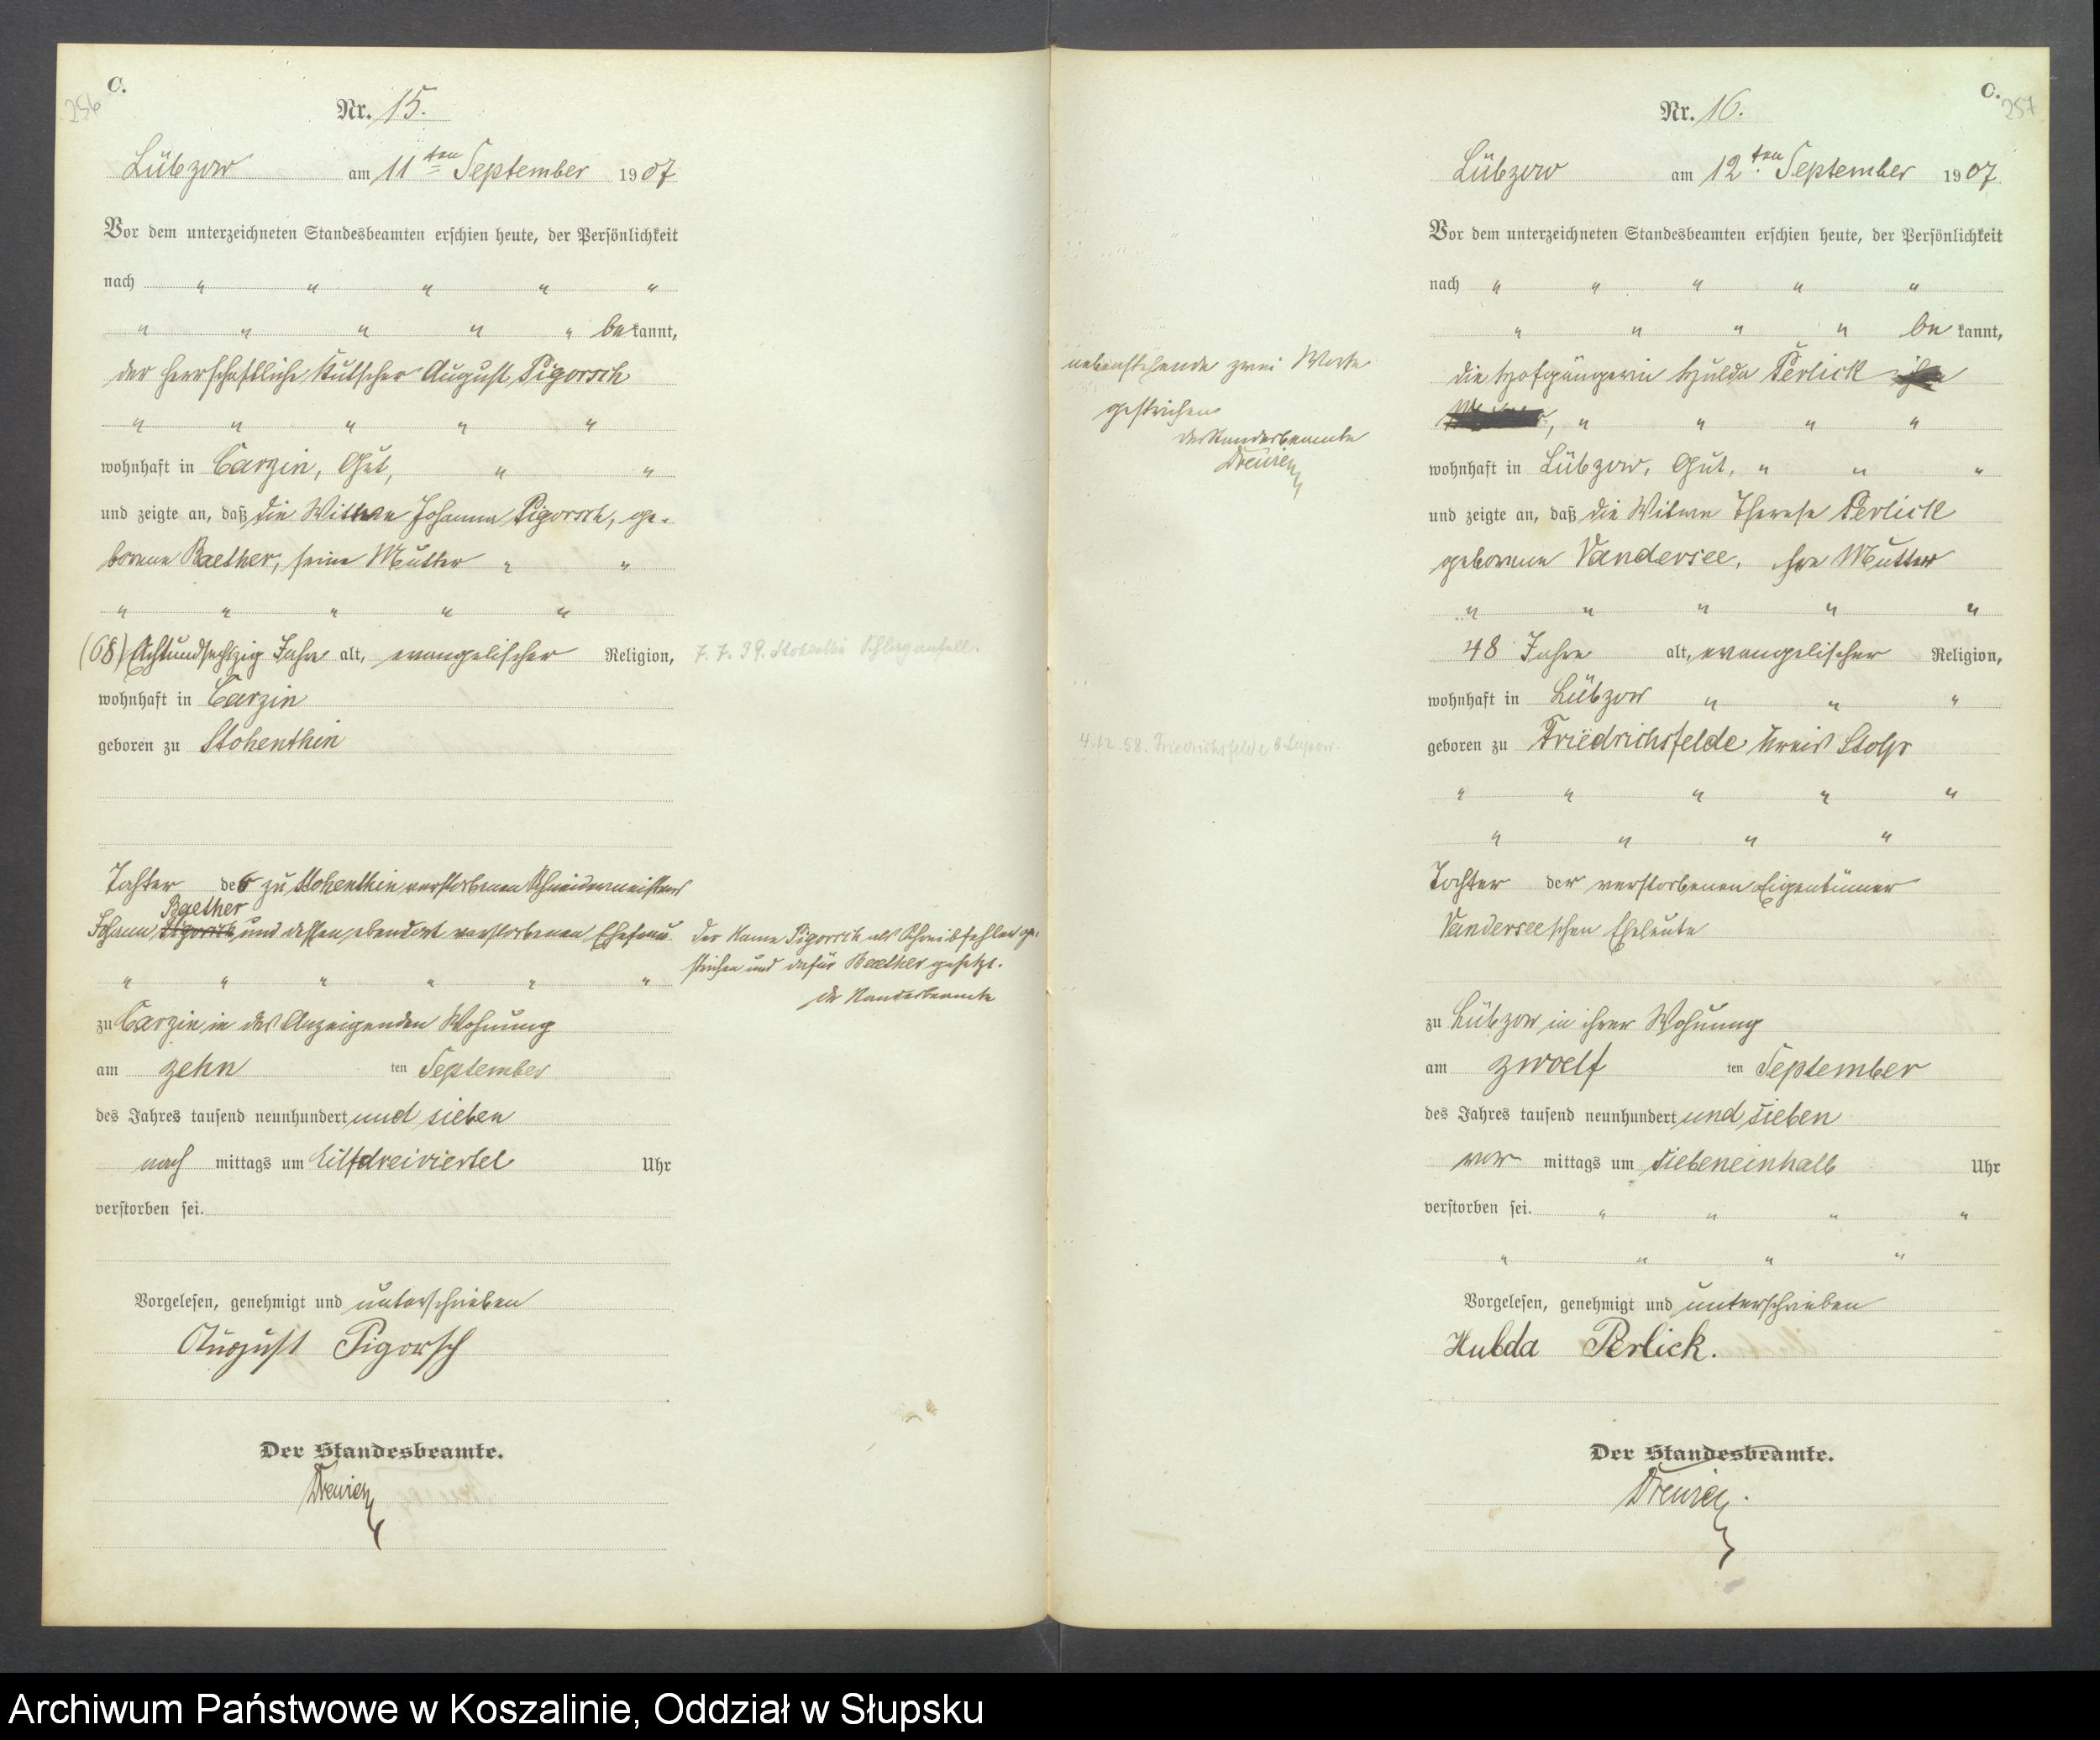 256
C.
Nr. 15.
Lübzow am 11ten September 1907
Vor dem unterzeichneten Standesbeamten erschien heute, der Persönlichkeit
nach " " " " "
" " " " " bekannt,
der herrschaftliche Kutscher August Pigorsch
" " " " "
wohnhaft in Carzin, Gut, " "
und zeigte an, daß die Wittwe Johanna Pigorsch, ge-
borene Baether, seine Mutter " "
" " " " "
(68) Achtundsechzig Jahre alt, evangelischer Religion,
7. 7. 39. Stohenthin Schlaganfall.
wohnhaft in Carzin
geboren zu Stohenthin
Tochter des zu Stohenthin verstorbenen Schneidermeisters
Baether
Johann Pigorsch und dessen ebendort verstorbenen Ehefrau
" " " " " "
Der Name Pigorsch als Schreibfehler ge-
strichen und dafür Baether gesetzt.
Der Standesbeamte
zu Carzin in des Anzeigenden Wohnung
am zehn ten September
des Jahres tausend neunhundert und sieben
nach mittags um Eilfdreiviertel Uhr
verstorben sei.
Vorgelesen, genehmigt und unterschrieben
August Pigorsch
Der Standesbeamte.
Drewien
C.
257
Nr. 16.
Lübzow am 12ten September 1907
Vor dem unterzeichneten Standesbeamten erschien heute, der Persönlichkeit
nach " " " " "
" " " " be kannt,
die Hofgängerin Hulda Perlick
" " " "
nebenstehende zwei Worte
gestrichen
Der Standesbeamte
Drewien
wohnhaft in Lübzow, Gut, " " "
und zeigte an, daß die Witwe Therese Perlick
geborene Vandersee, ihre Mutter
" " " " "
48 Jahre alt, evangelischer Religion,
wohnhaft in Lübzow " " "
geboren zu Friedrichsfelde Kreis Stolp
4. 12. 58. Friedrichsfelde
" " " " "
" " " "
Tochter der verstorbenen Eigentümer
Vandersee'schen Eheleute
zu Lübzow in ihrer Wohnung
am zwoelf ten September
des Jahres tausend neunhundert und sieben
vor mittags um siebeneinhalb Uhr
verstorben sei. " " " "
" " " "
Vorgelesen, genehmigt und unterschrieben
Hulda Perlick.
Der Standesbeamte.
Drewien
Archiwum Państwowe w Koszalinie, Oddział w Słupsku